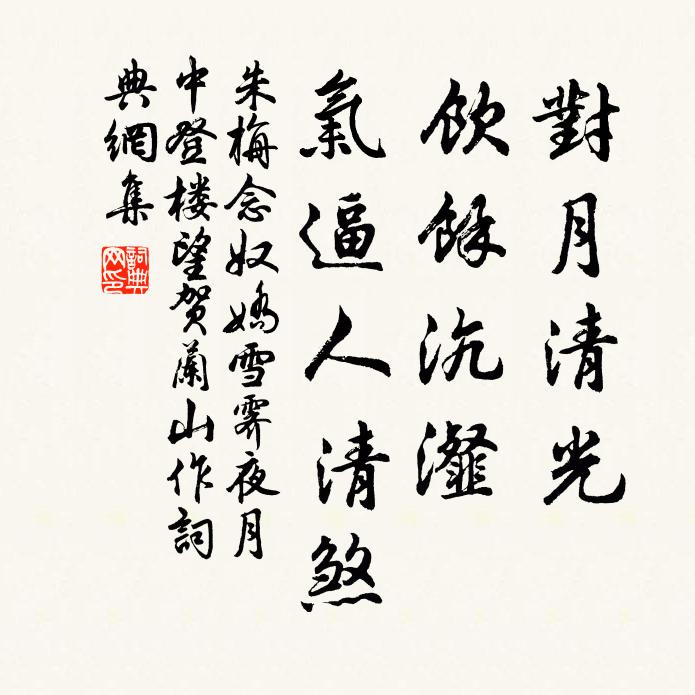 對月清光
飲餘沆瀣
氣逼人清煞
朱梅念奴嬌雪霽夜月
中登楼望贺蘭山作詞
典網集
詞典
网印